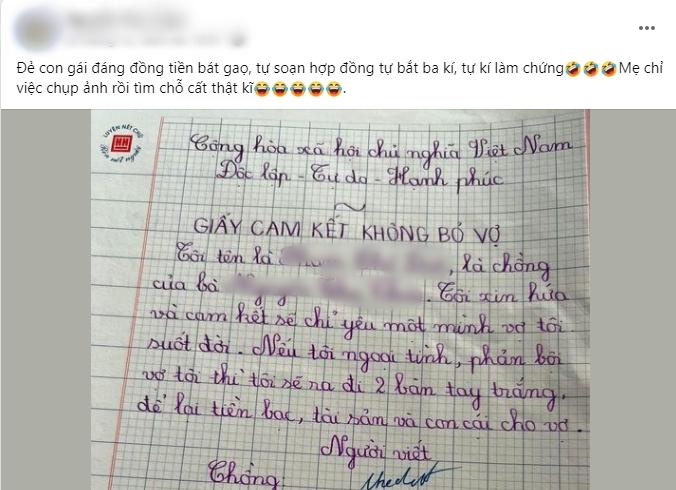 Đẻ con gái đáng đồng tiền bát gạo, tự soạn hợp đồng tự bắt ba kí, tự kí làm chứng🤣🤣🤣Mẹ chỉ
việc chụp ảnh rồi tìm chỗ cất thật kĩ😂😂😂😂😂.
LUYỆN NÉT CHỮ
HN
Rèn nết người
Cộng hòa xã hội chủ nghĩa Việt Nam
Độc lập - Tự do - Hạnh phúc
GIẤY CAM KẾT KHÔNG BỎ VỢ
Tôi tên là , là chồng
của bà . Tôi xin hứa
và cam kết sẽ chỉ yêu một mình vợ tôi
suốt đời. Nếu tôi ngoại tình, phản bội
vợ tôi thì tôi sẽ ra đi 2 bàn tay trắng,
để lại tiền bạc, tài sản và con cái cho vợ.
Người viết
Chồng: